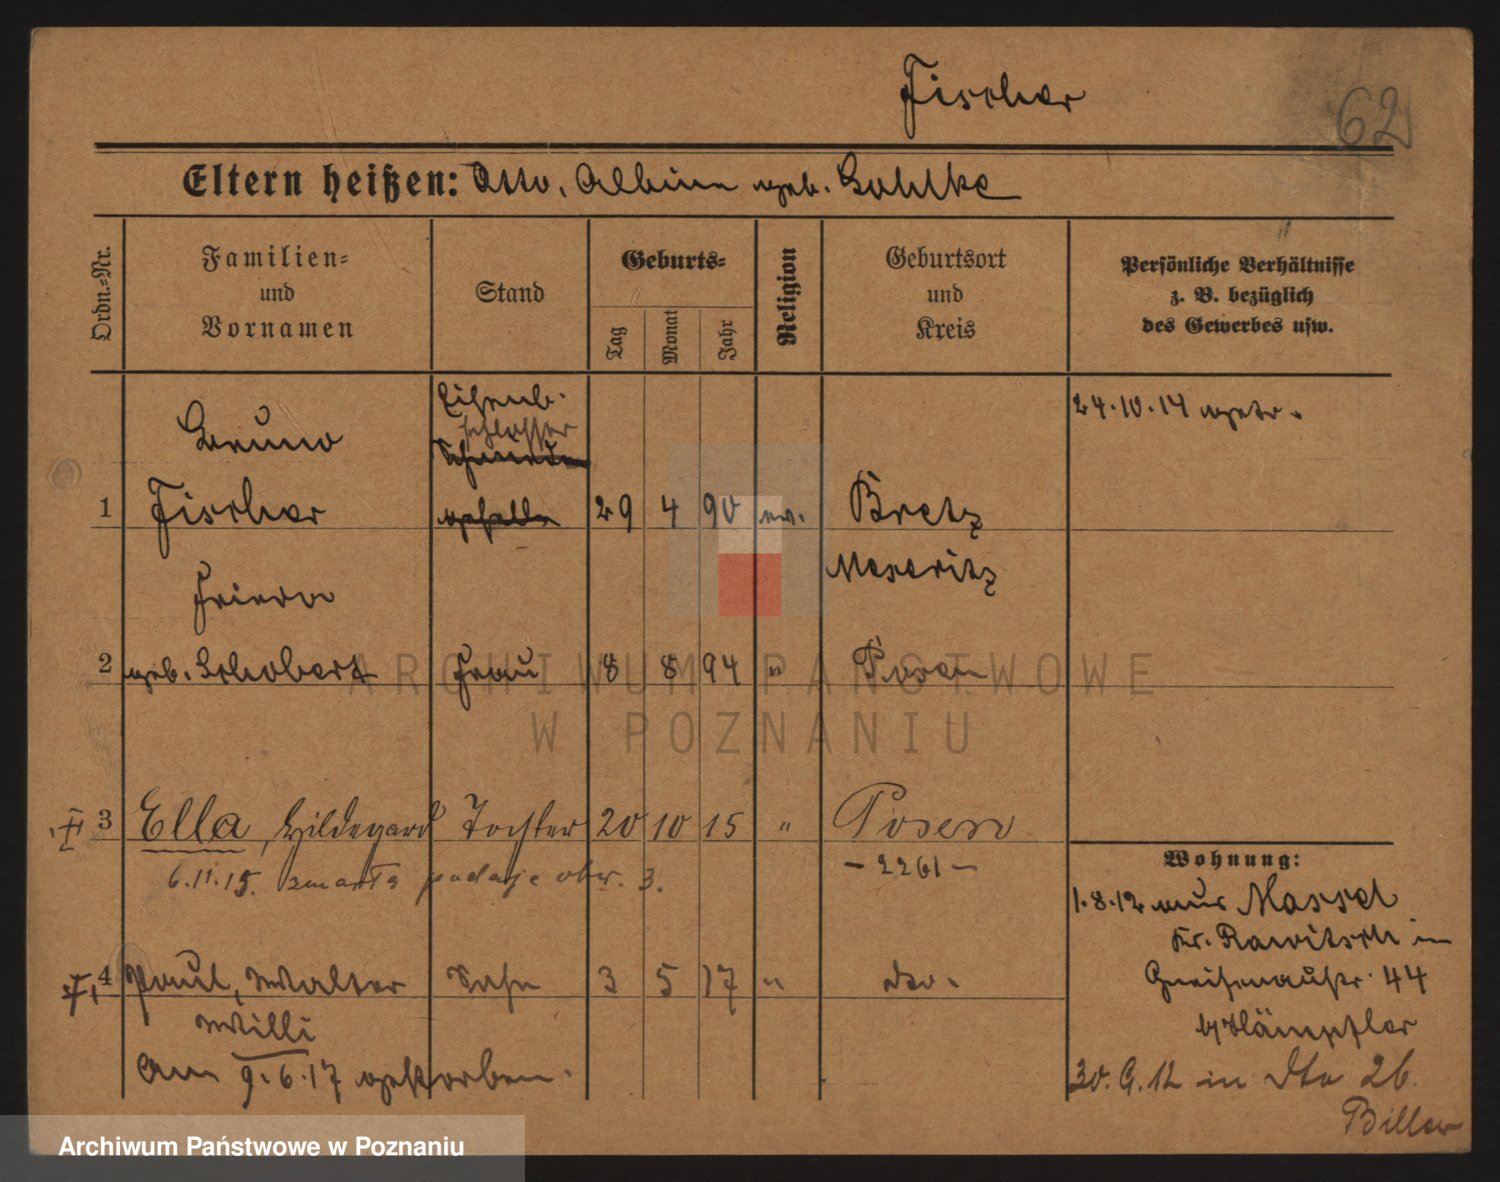 Fischer
62
Eltern heißen: Otto, Albine geb. Gohlke
Ordn.-Nr.
Familien-
und
Vornamen
Stand
Geburts-
Tag
Monat
Jahr
Religion
Geburtsort
und
Kreis
Persönliche Verhältnisse
z. B. bezüglich
des Gewerbes usw.
Bruno
Eisenb.
schlosser
24.10.14 getr.
1 Fischer 29 4 90 ev. Bretz
Meseritz
2 geb. Schobert Frau 8 8 94 " Posen
3 Ella, Hildegard Tochter 20 10 15 " Posen
6.11.15. zmarła podaje obw. 3.
- 2261 -
4 Paul, Walter Sohn 3 5 17 " do.
Willi
Am 9.6.17 gestorben.
Wohnung:
1.8.12 aus Massel
Kr. Rawitsch in
Gneisenaustr. 44
b/Hämpfler
30.9.12 in Dto 26.
Biller
ARCHIWUM PAŃSTWOWE
W POZNANIU
Archiwum Państwowe w Poznaniu